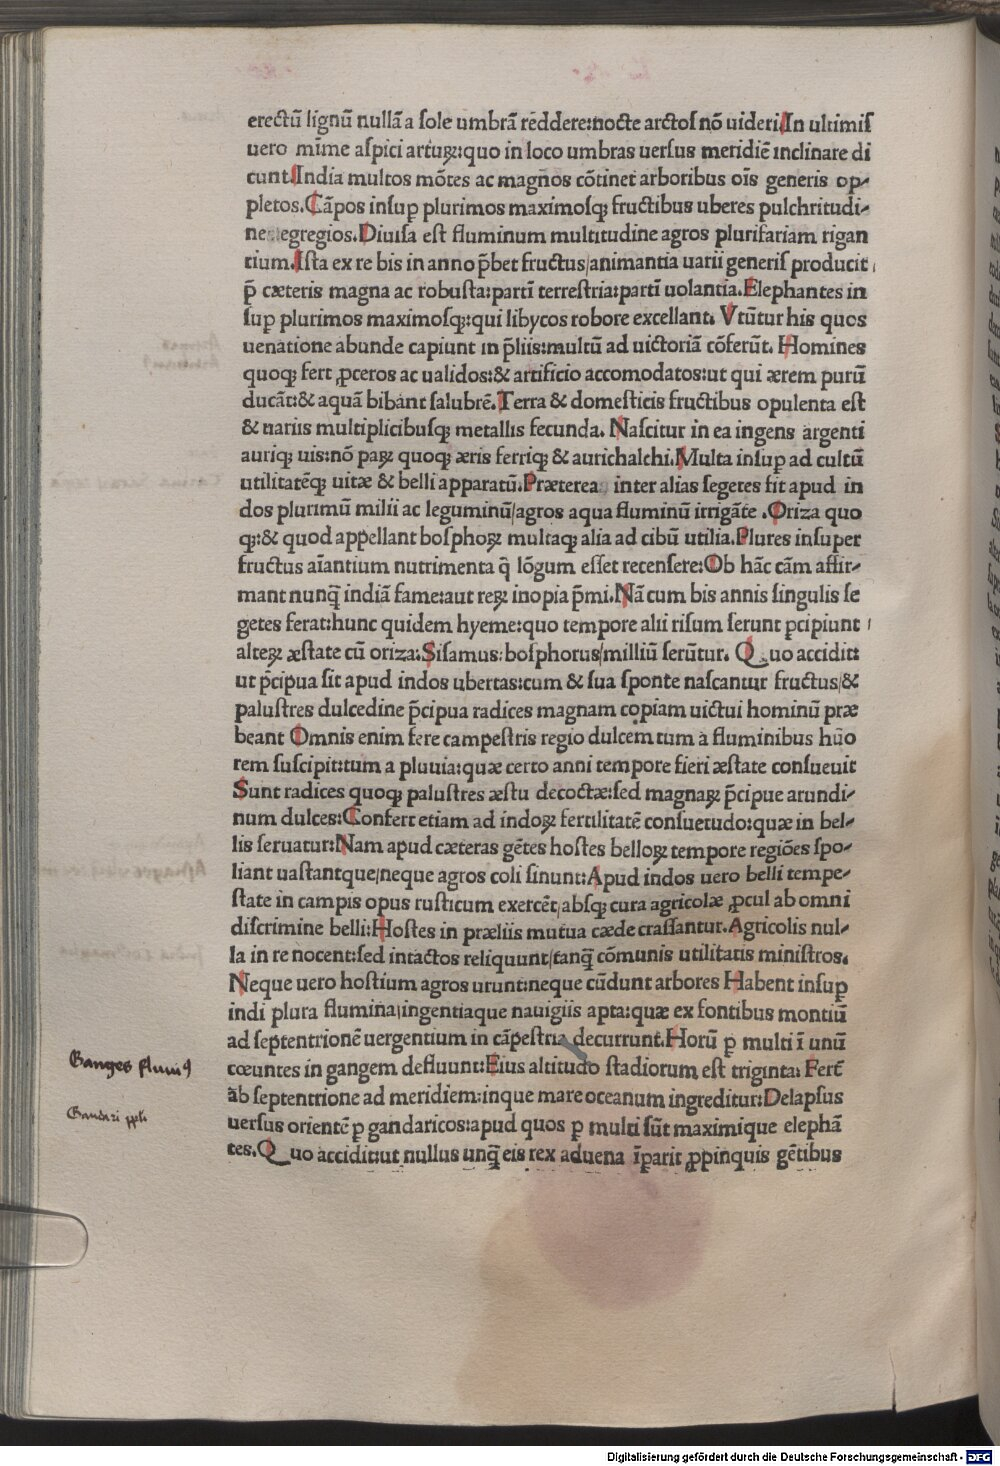 erectū lignū nullā a ſole umbrā rēddere:nocte arctoſ nō uideri.In ultimiſ
uero mīme aſpici arturꝝ:quo in loco umbras uerſus meridiē inclinare di
cunt.India multos mōtes ac magnos cōtinet arboribus oīs generis op-
pletos.Cāpos inſuꝑ plurimos maximoſqꝫ fructibus uberes pulchritudi-
ne egregios.Diuiſa eſt fluminum multitudine agros plurifariam rigan
tium.Iſta ex re bis in anno p̄bet fructus/animantia uarii generiſ producit
p̄ cæteris magna ac robuſta:partī terreſtria:partī uolantia.Elephantes in
ſuꝑ plurimos maximoſqꝫ:qui libycos robore excellant. Vtūtur his quos
uenatione abunde capiunt in p̄liis:multū ad uictoriā cōferūt. Homines
quoqꝫ fert ꝓceros ac ualidos:& artificio accomodatos:ut qui ærem purū
ducāt:& aquā bibant ſalubrē.Terra & domeſticis fructibus opulenta eſt
& uariis multiplicibuſqꝫ metallis fecunda. Naſcitur in ea ingens argenti
auriqꝫ uis:nō paꝝ quoqꝫ æris ferriqꝫ & aurichalchi.Multa inſuꝑ ad cultū
utilitatēqꝫ uitæ & belli apparatū.Præterea inter alias ſegetes fit apud in
dos plurimū milii ac leguminū/agros aqua fluminū irrigāte .Oriza quo
qꝫ:& quod appellant boſphoꝝ multaqꝫ alia ad cibū utilia.Plures inſuper
fructus aīantium nutrimenta q̄ lōgum eſſet recenſere:Ob hāc cām affir-
mant nunq̄ indiā fame:aut reꝝ inopia p̄mi.Nā cum bis annis ſingulis ſe
getes ferat:hunc quidem hyeme:quo tempore alii riſum ſerunt ꝑcipiunt
alteꝝ æſtate cū oriza:Siſamus:boſphorus/milliū ſerūtur. Quo accidit:
ut p̄cipua ſit apud indos ubertas:cum & ſua ſponte naſcantur fructus/&
paluſtres dulcedine p̄cipua radices magnam copiam uictui hominū præ
beant Omnis enim fere campeſtris regio dulcem tum a fluminibus hūo
rem ſuſcipit:tum a pluuia:quæ certo anni tempore fieri æſtate conſueuit
Sunt radices quoqꝫ paluſtres æſtu decoctæ:ſed magnaꝝ p̄cipue arundi-
num dulces:Confert etiam ad indoꝝ fertilitatē conſuetudo:quæ in bel-
lis ſeruatur:Nam apud cæteras gētes hoſtes belloꝝ tempore regiōes ſpo-
liant uaſtantque/neque agros coli ſinunt:Apud indos uero belli tempe-
ſtate in campis opus ruſticum exercēt/abſqꝫ cura agricolæ ꝓcul ab omni
diſcrimine belli:Hoſtes in præliis mutua cæde craſſantur.Agricolis nul-
la in re nocent:ſed intactos reliquunt/tanq̄ cōmunis utilitatis miniſtros.
Neque uero hoſtium agros urunt:neque cūdunt arbores Habent inſuꝑ
indi plura flumina/ingentiaque nauigiis apta:quæ ex fontibus montiū
ad ſeptentrionē uergentium in cāpeſtria decurrunt.Horū ꝑ multi ī unū
cœuntes in gangem defluunt:Eius altitudo ſtadiorum eſt triginta: Fert̄
ab ſeptentrione ad meridiem:inque mare oceanum ingreditur:Delapſus
uerſus orientē ꝑ gandaricos:apud quos ꝑ multi ſūt maximique elephā
tes.Quo accidit:ut nullus unq̄ eis rex aduena īparit ꝓpinquis gētibus
Ganges fluuiꝰ
Gandari ppli
Digitalisierung gefördert durch die Deutsche Forschungsgemeinschaft - DFG